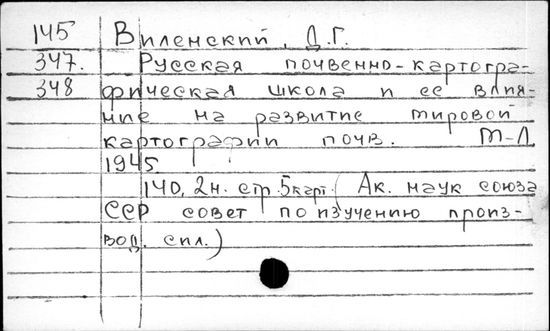 145 Виленский, Д.Г.
347. Русская почвенно-картогра-
348 фическая школа и ее влия-
ние на развитие мировой
картографии почв. М-Л
1945
140, 2н. стр. 5карт. (Ак. наук союза
ССР совет по изучению произ-
вод. сил.)